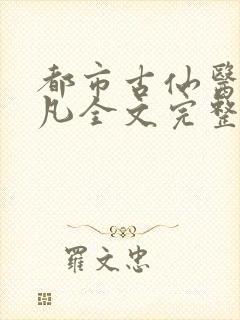 都市古仙醫
凡全文完整
羅文忠